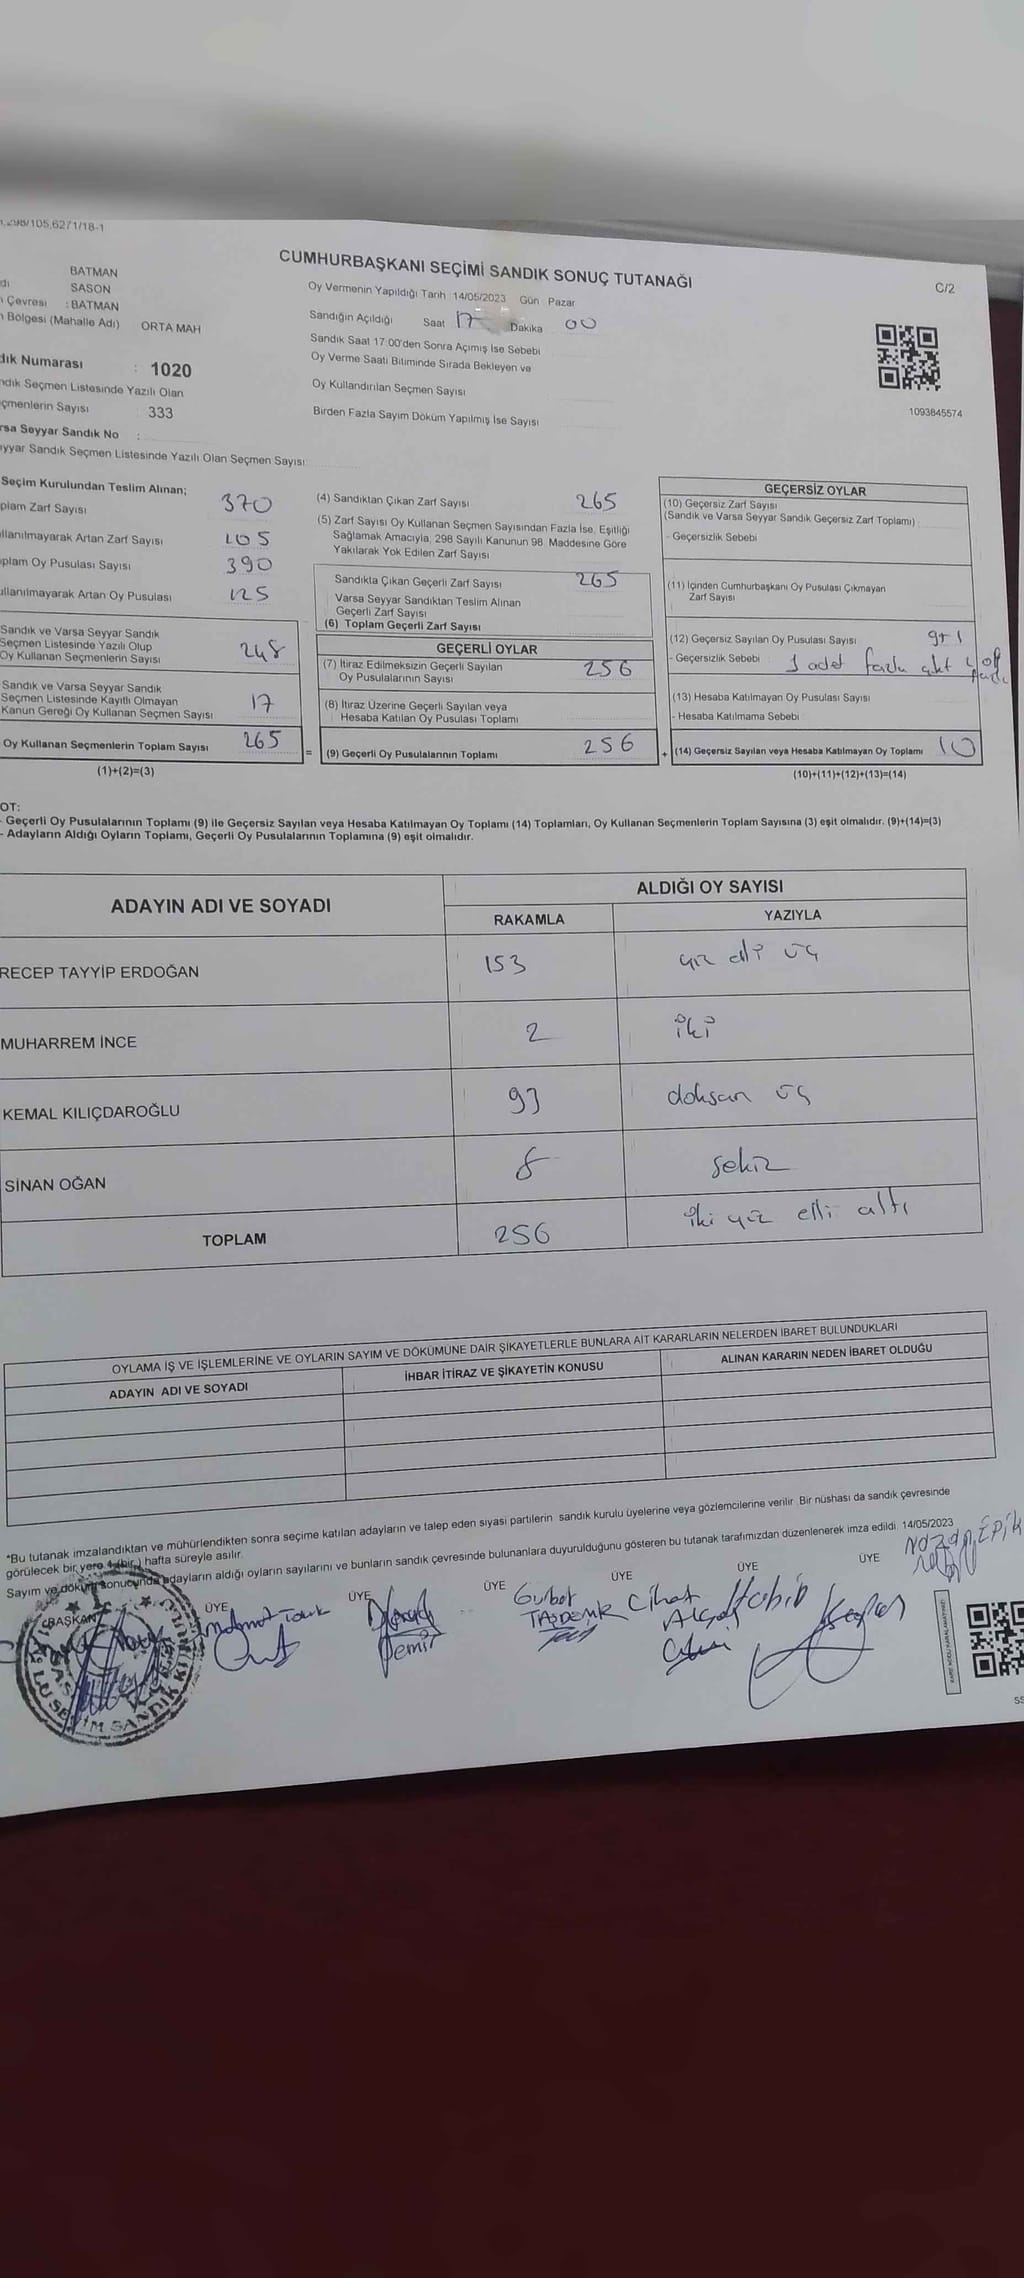 298/105,6271/18-1
CUMHURBAŞKANI SEÇİMİ SANDIK SONUÇ TUTANAĞI
C/2
BATMAN
SASON
Çevresi : BATMAN
Bölgesi (Mahalle Adı) ORTA MAH
Oy Vermenin Yapıldığı Tarih 14/05/2023 Gün Pazar
Sandığın Açıldığı Saat 17 Dakika 00
Sandık Saat 17:00'den Sonra Açımış İse Sebebi
Oy Verme Saati Bitiminde Sırada Bekleyen ve
Oy Kullandırılan Seçmen Sayısı
Birden Fazla Sayım Döküm Yapılmış İse Sayısı
1093845574
dık Numarası : 1020
ndık Seçmen Listesinde Yazılı Olan
çmenlerin Sayısı 333
rsa Seyyar Sandık No :
yyar Sandık Seçmen Listesinde Yazılı Olan Seçmen Sayısı:
Seçim Kurulundan Teslim Alınan;
plam Zarf Sayısı 370
llanılmayarak Artan Zarf Sayısı 105
plam Oy Pusulası Sayısı 390
ullanılmayarak Artan Oy Pusulası 125
Sandık ve Varsa Seyyar Sandık
Seçmen Listesinde Yazılı Olup
Oy Kullanan Seçmenlerin Sayısı 248
Sandık ve Varsa Seyyar Sandık
Seçmen Listesinde Kayıtlı Olmayan
Kanun Gereği Oy Kullanan Seçmen Sayısı 17
Oy Kullanan Seçmenlerin Toplam Sayısı 265
(1)+(2)=(3)
(4) Sandıktan Çıkan Zarf Sayısı 265
(5) Zarf Sayısı Oy Kullanan Seçmen Sayısından Fazla İse, Eşitliği
Sağlamak Amacıyla, 298 Sayılı Kanunun 98. Maddesine Göre
Yakılarak Yok Edilen Zarf Sayısı
Sandıkta Çıkan Geçerli Zarf Sayısı 265
Varsa Seyyar Sandıktan Teslim Alınan
Geçerli Zarf Sayısı
(6) Toplam Geçerli Zarf Sayısı
GEÇERLİ OYLAR
(7) İtiraz Edilmeksizin Geçerli Sayılan
Oy Pusulalarının Sayısı 256
(8) İtiraz Üzerine Geçerli Sayılan veya
Hesaba Katılan Oy Pusulası Toplamı
= (9) Geçerli Oy Pusulalarının Toplamı 256
GEÇERSİZ OYLAR
(10) Geçersiz Zarf Sayısı
(Sandık ve Varsa Seyyar Sandık Geçersiz Zarf Toplamı)
- Geçersizlik Sebebi
(11) İçinden Cumhurbaşkanı Oy Pusulası Çıkmayan
Zarf Sayısı
(12) Geçersiz Sayılan Oy Pusulası Sayısı 9+1
- Geçersizlik Sebebi 1 adet fazla çıktı
(13) Hesaba Katılmayan Oy Pusulası Sayısı
- Hesaba Katılmama Sebebi
+ (14) Geçersiz Sayılan veya Hesaba Katılmayan Oy Toplamı 10
(10)+(11)+(12)+(13)=(14)
OT:
- Geçerli Oy Pusulalarının Toplamı (9) ile Geçersiz Sayılan veya Hesaba Katılmayan Oy Toplamı (14) Toplamları, Oy Kullanan Seçmenlerin Toplam Sayısına (3) eşit olmalıdır. (9)+(14)=(3)
- Adayların Aldığı Oyların Toplamı, Geçerli Oy Pusulalarının Toplamına (9) eşit olmalıdır.
ADAYIN ADI VE SOYADI ALDIĞI OY SAYISI
RAKAMLA YAZIYLA
RECEP TAYYİP ERDOĞAN 153 yüz elli üç
MUHARREM İNCE 2 iki
KEMAL KILIÇDAROĞLU 93 doksan üç
SİNAN OĞAN 8 sekiz
TOPLAM 256 iki yüz elli altı
OYLAMA İŞ VE İŞLEMLERİNE VE OYLARIN SAYIM VE DÖKÜMÜNE DAİR ŞİKAYETLERLE BUNLARA AİT KARARLARIN NELERDEN İBARET BULUNDUKLARI
ADAYIN ADI VE SOYADI İHBAR İTİRAZ VE ŞİKAYETİN KONUSU ALINAN KARARIN NEDEN İBARET OLDUĞU
"Bu tutanak imzalandıktan ve mühürlendikten sonra seçime katılan adayların ve talep eden siyasi partilerin sandık kurulu üyelerine veya gözlemcilerine verilir. Bir nüshası da sandık çevresinde
görülecek bir yere 1 (bir) hafta süreyle asılır.
Sayım ve döküm sonucunda adayların aldığı oyların sayılarını ve bunların sandık çevresinde bulunanlara duyurulduğunu gösteren bu tutanak tarafımızdan düzenlenerek imza edildi. 14/05/2023
BAŞKAN ÜYE ÜYE ÜYE ÜYE ÜYE ÜYE
Demir
Gurbet
TAŞDEMİR
Cihat
Habib